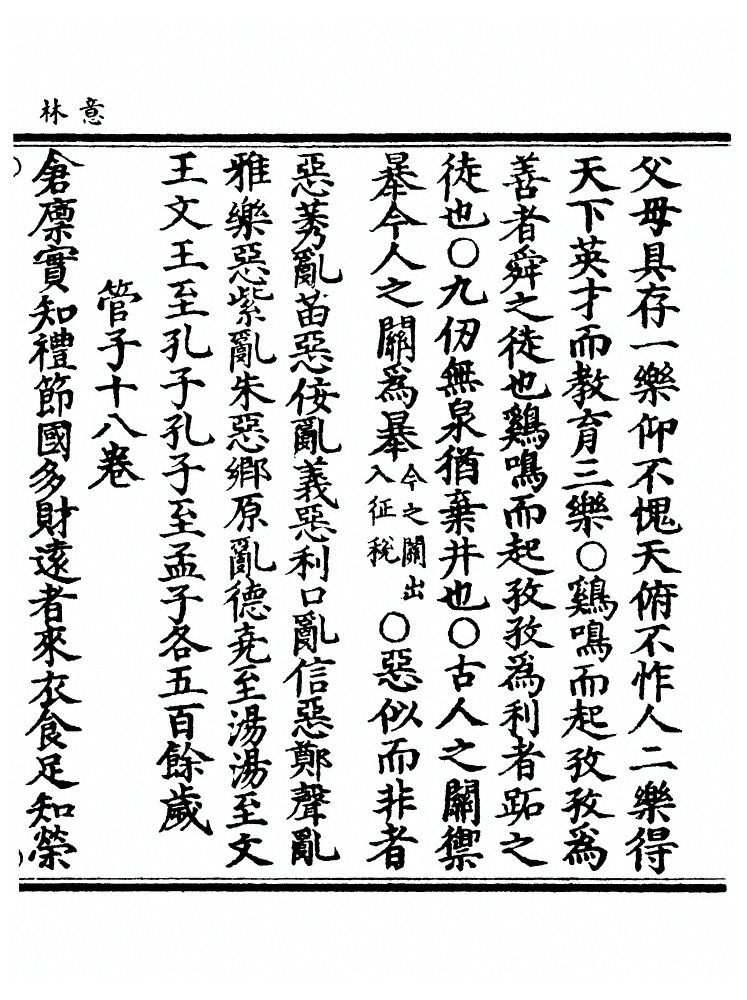 意林
父母具存一樂仰不愧天俯不怍人二樂得
天下英才而教育三樂○鷄鳴而起孜孜為
善者舜之徒也鷄鳴而起孜孜為利者跖之
徒也○九仞無泉猶棄井也○古人之關禦
暴今人之關為暴今之關出入征稅○惡似而非者
惡莠亂苗惡佞亂義惡利口亂信惡鄭聲亂
雅樂惡紫亂朱惡鄉原亂德堯至湯湯至文
王文王至孔子孔子至孟子各五百餘歲
管子十八卷
倉廩實知禮節國多財遠者來衣食足知榮